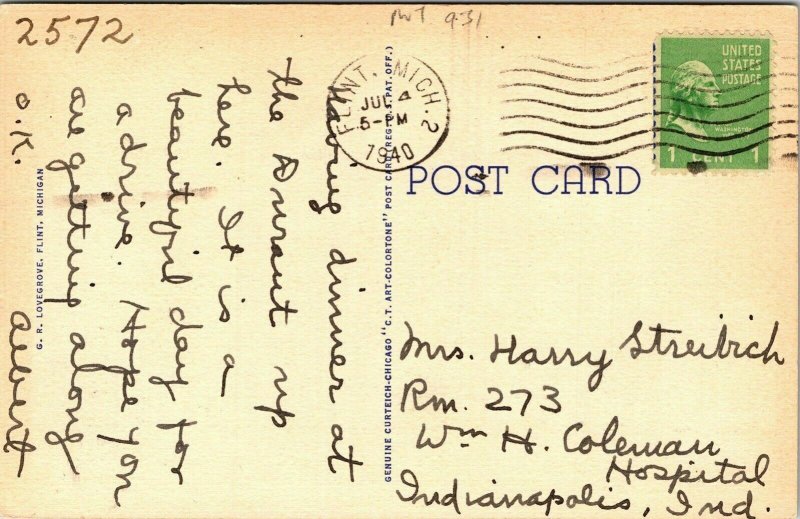 2572
9-31
FLINT, MICH. 2
4
5-PM
1940
UNITED
STATES
POSTAGE
WASHINGTON
1 CENT 1
POST CARD
Having dinner at
the Durant up
here. It is a
beautiful day for
a drive. Hope you
are getting along
o.K. Albert
G. R. LOVEGROVE, FLINT, MICHIGAN
GENUINE CURTEICH-CHICAGO "C.T. ART-COLORTONE" POST CARD (REG. U.S. PAT. OFF.)
Mrs. Harry Streibich
Rm. 273
Wm H. Coleman
Hospital
Indianapolis, Ind.